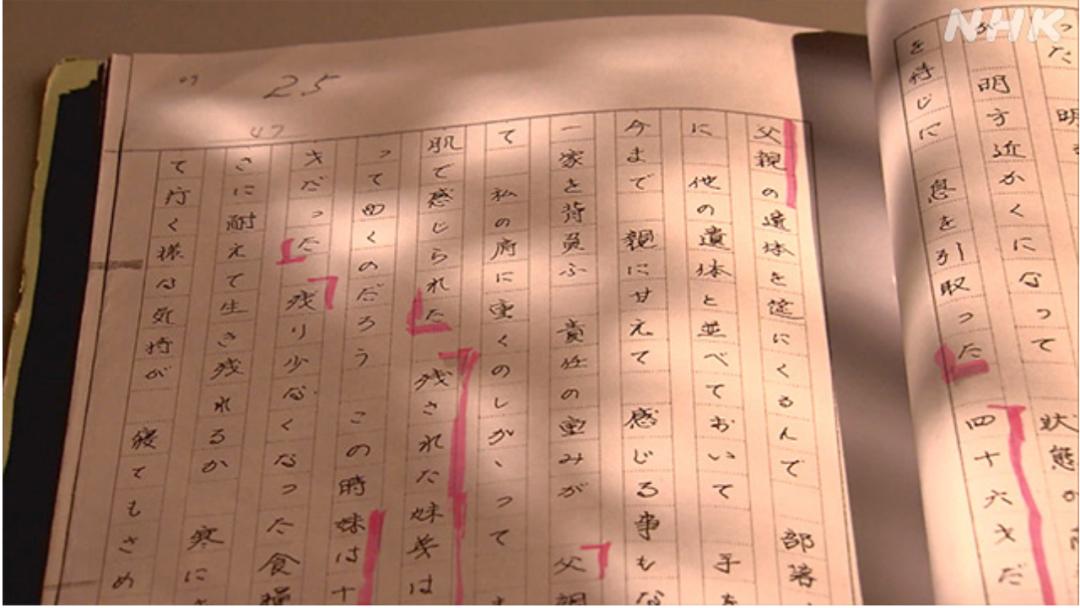 NHK
った 明
が 明方近かくになって 状態が
を待じに 息を引取った 四十六才だ
25
47
父親の遺体を筵にくるんで 部落
に 他の遺体と並べておいて 手を
今まで 親に甘えて 感じる事もな
一家を背負ふ 責任の重みが 父親
て 私の肩に重くのしかゝって
肌で感じられた 残された妹弟は
って行くのだろう この時妹は十
才だった 残り少なくなった食糧
さに耐えて生き残れるか 寒に
て行く様な気持が 寝てもさめ